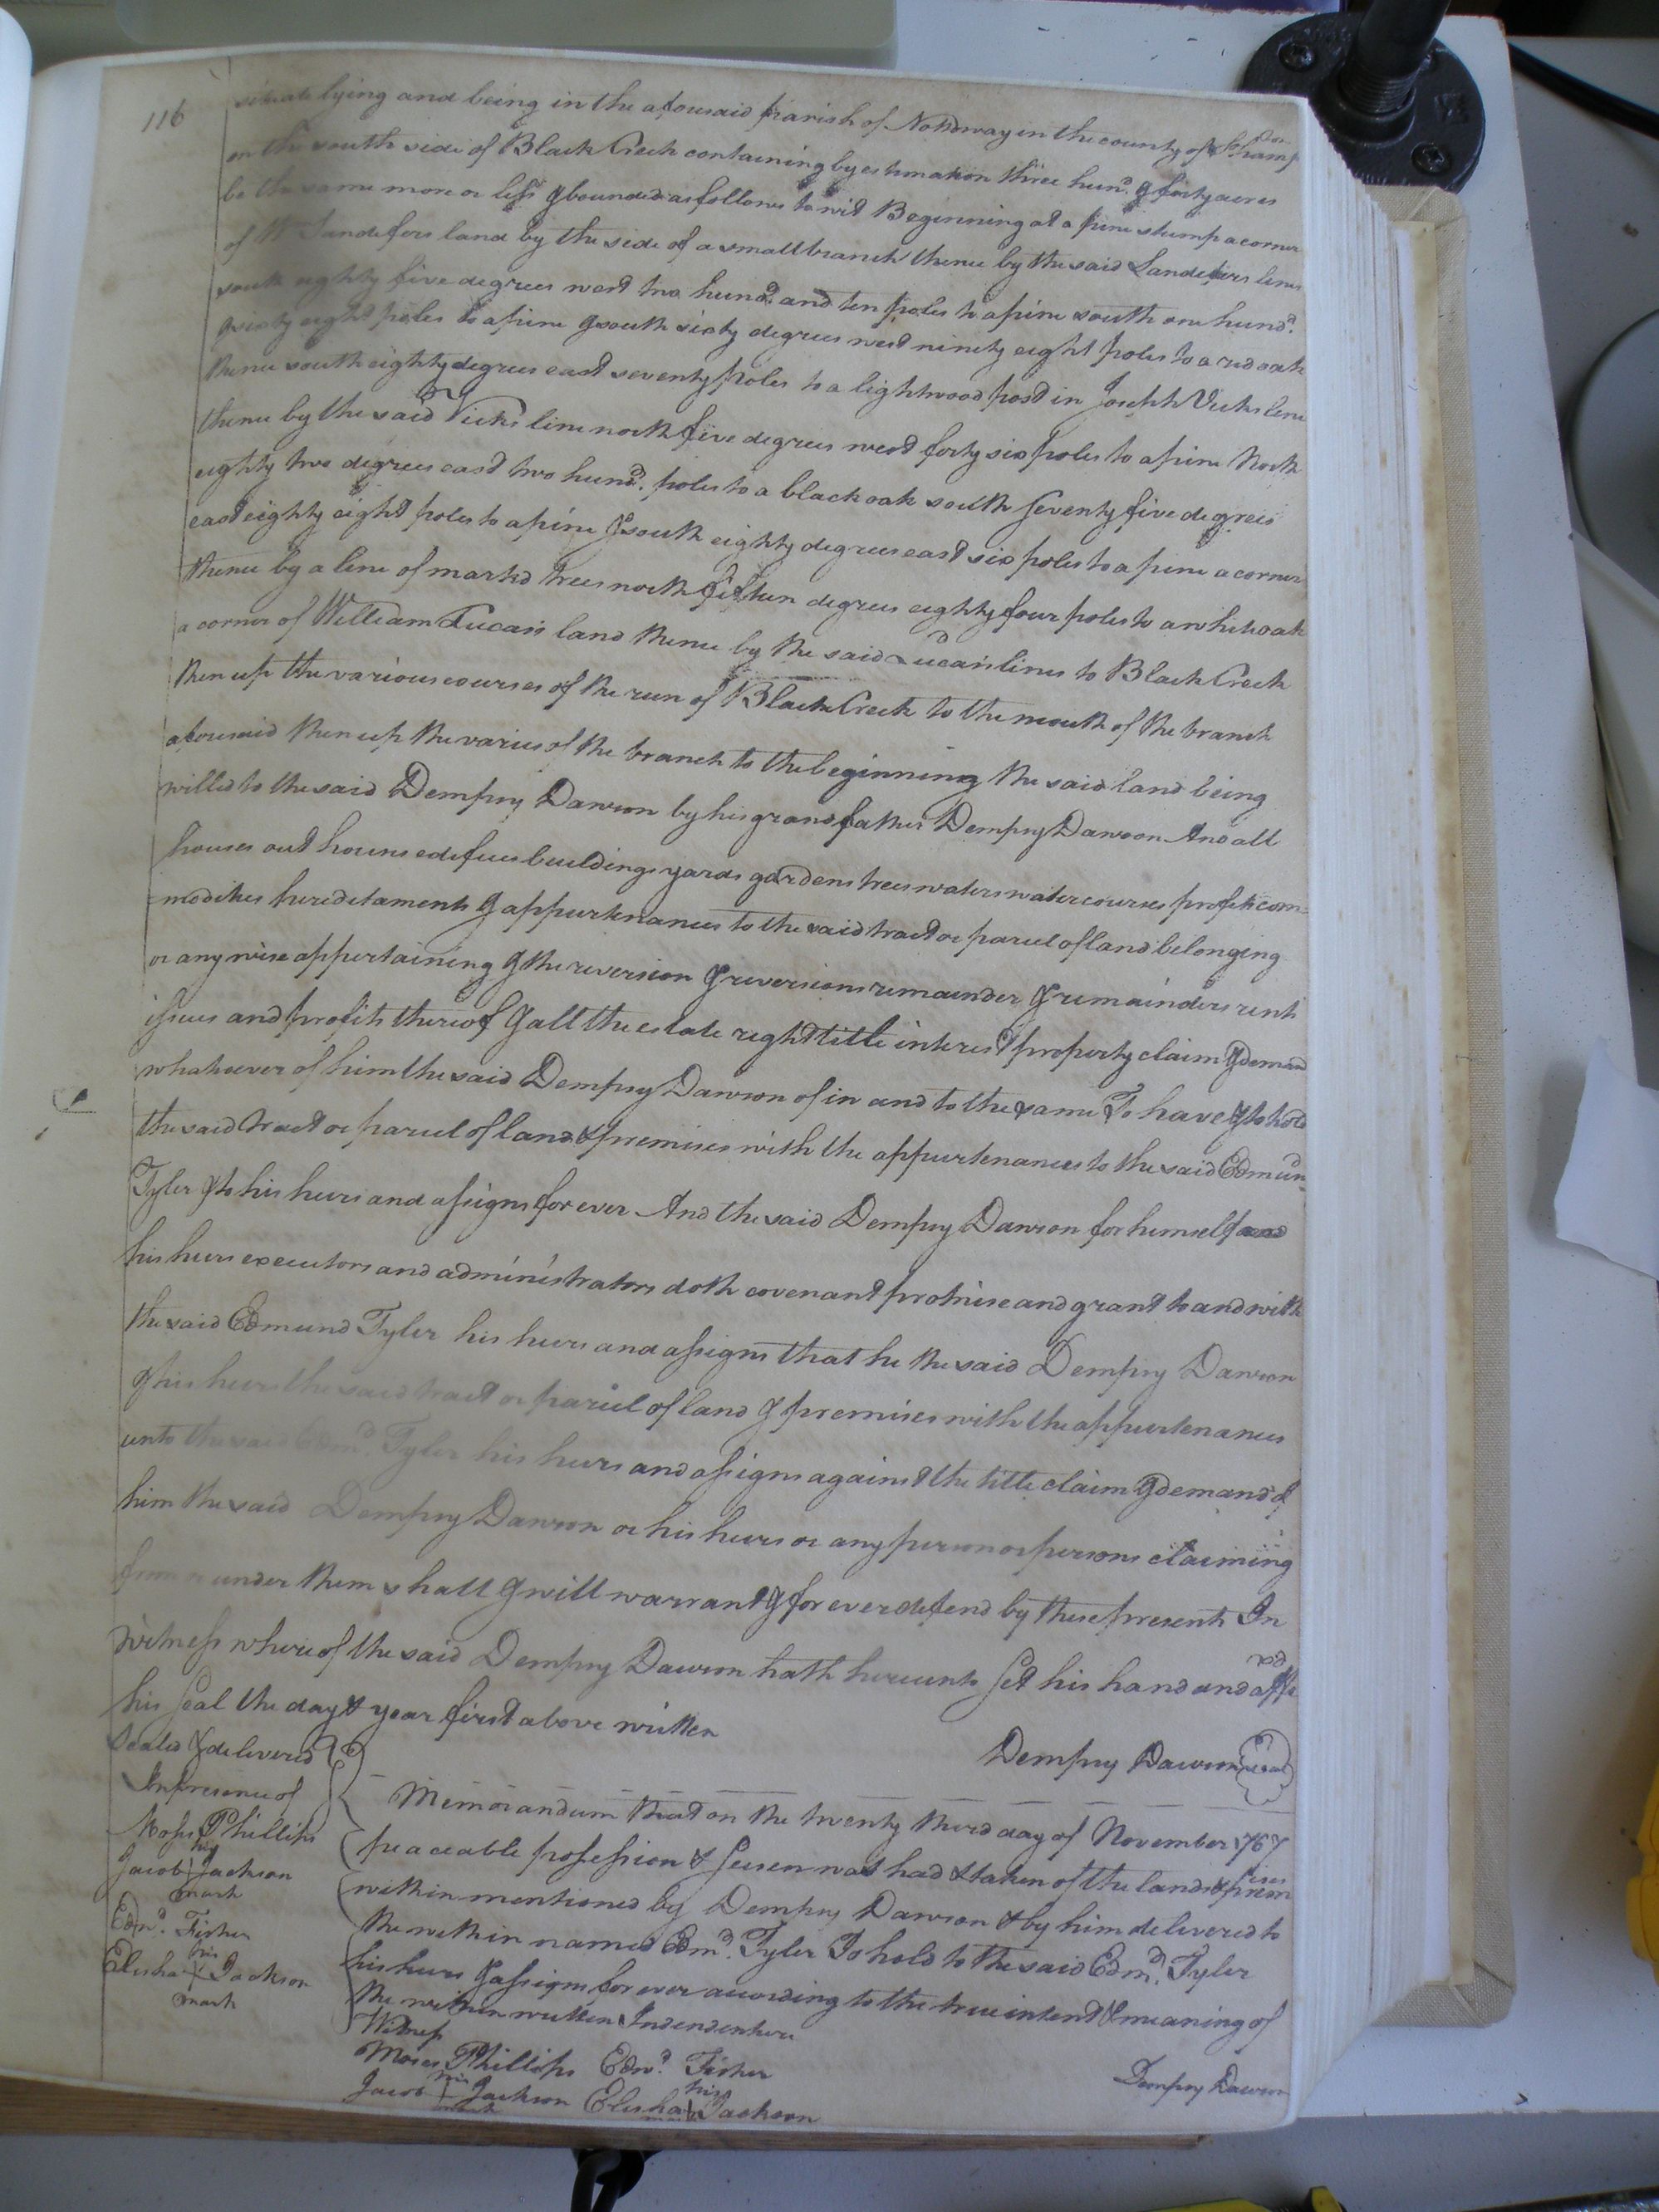 116
situate lying and being in the aforesaid parish of Nottoway in the county of Southamp ton
on the south side of Black Creek containing by estimation three hund. & forty acres
be the same more or less & bounded as follows to wit Beginning at a pine stump a corner
of Wm Sandefers land by the side of a small branch thence by the said Sandefers lines
south eighty five degrees west two hund. and ten poles to a pine south one hund.
& sixty eight poles to a pine & south sixty degrees west ninety eight poles to a red oak
thence south eighty degrees east seventy poles to a lightwood post in Joseph Vicks line
thence by the said Vicks line north five degrees west forty six poles to a pine North
eighty two degrees east two hund. poles to a black oak south seventy five degrees
east eighty eight poles to a pine & south eighty degrees east six poles to a pine a corner
thence by a line of markd trees north fifteen degrees eighty four poles to a white oak
a corner of William Lucas's land thence by the said Lucas's lines to Black Creek
then up the various courses of the run of Black Creek to the mouth of the branch
aforesaid then up the varius of the branch to the beginning the said land being
willed to the said Dempsy Dawson by his grandfather Dempsy Dawson And all
houses out houses edefices buildings yards gardens trees waters water courses profits com=
modities hereditaments & appurtenances to the said tract or parcel of land belonging
or any wise appertaining & the reversion & reversions remainder & remainders rents
issues and profits thereof & all the estate right title interest property claim & demand
whatsoever of him the said Dempsy Dawson of in and to the same To have & to hold
the said tract or parcel of land & premises with the appurtenances to the said Edmund
Tyler & to his heirs and assigns for ever And the said Dempsy Dawson for himself and
his heirs executors and administrators doth covenant promise and grant to and with
the said Edmund Tyler his heirs and assigns that he the said Dempsy Dawson
& his heirs the said tract or parcel of land & premises with the appurtenances
unto the said Edmd. Tyler his heirs and assigns against the title claim & demand of
him the said Dempsy Dawson or his heirs or any person or persons claiming
from or under them shall & will warrant & for ever defend by these presents In
witness whereof the said Dempsy Dawson hath hereunto set his hand and affi xed
his seal the day & year first above written
Sealed & delivered
In presence of
Moses Phillips
his
Jacob Jackson
mark
Edwd. Fisher
his
Elisha Jackson
mark
Dempsy Dawson seal
Memorandum that on the twenty third day of November 1767
peaceable possession & seisen was had & taken of the land & prem ises
within mentioned by Dempsy Dawson & by him delivered to
the within named Edmd. Tyler To hold to the said Edmd. Tyler
his heirs & assigns for ever according to the true intent & meaning of
the within written Indendenture
Witness
Moses Phillips Edwd. Fisher
his his
Jacob Jackson Elisha Jackson
mark mark
Dempsy Dawson